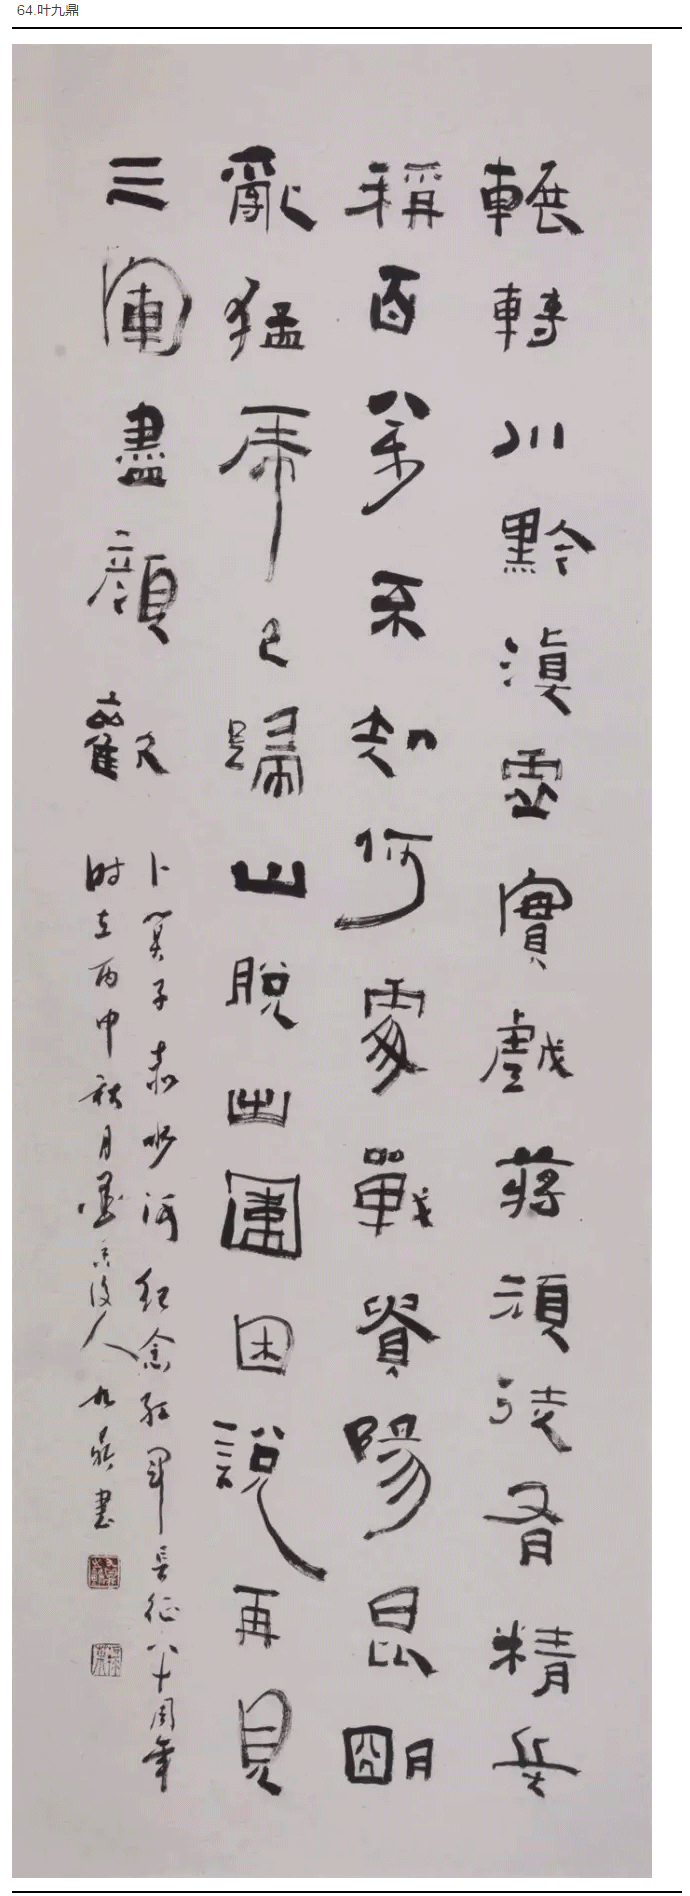 64.叶九鼎
輾轉川黔滇虛實戲蔣頑徒有精兵
稱百萬不知何處戰貴陽昆明
亂猛虎已歸山脫出圍困說再見
三軍盡顏歡
卜算子赤水河紀念紅軍長征八十周年
时在丙申秋月後人九鼎書